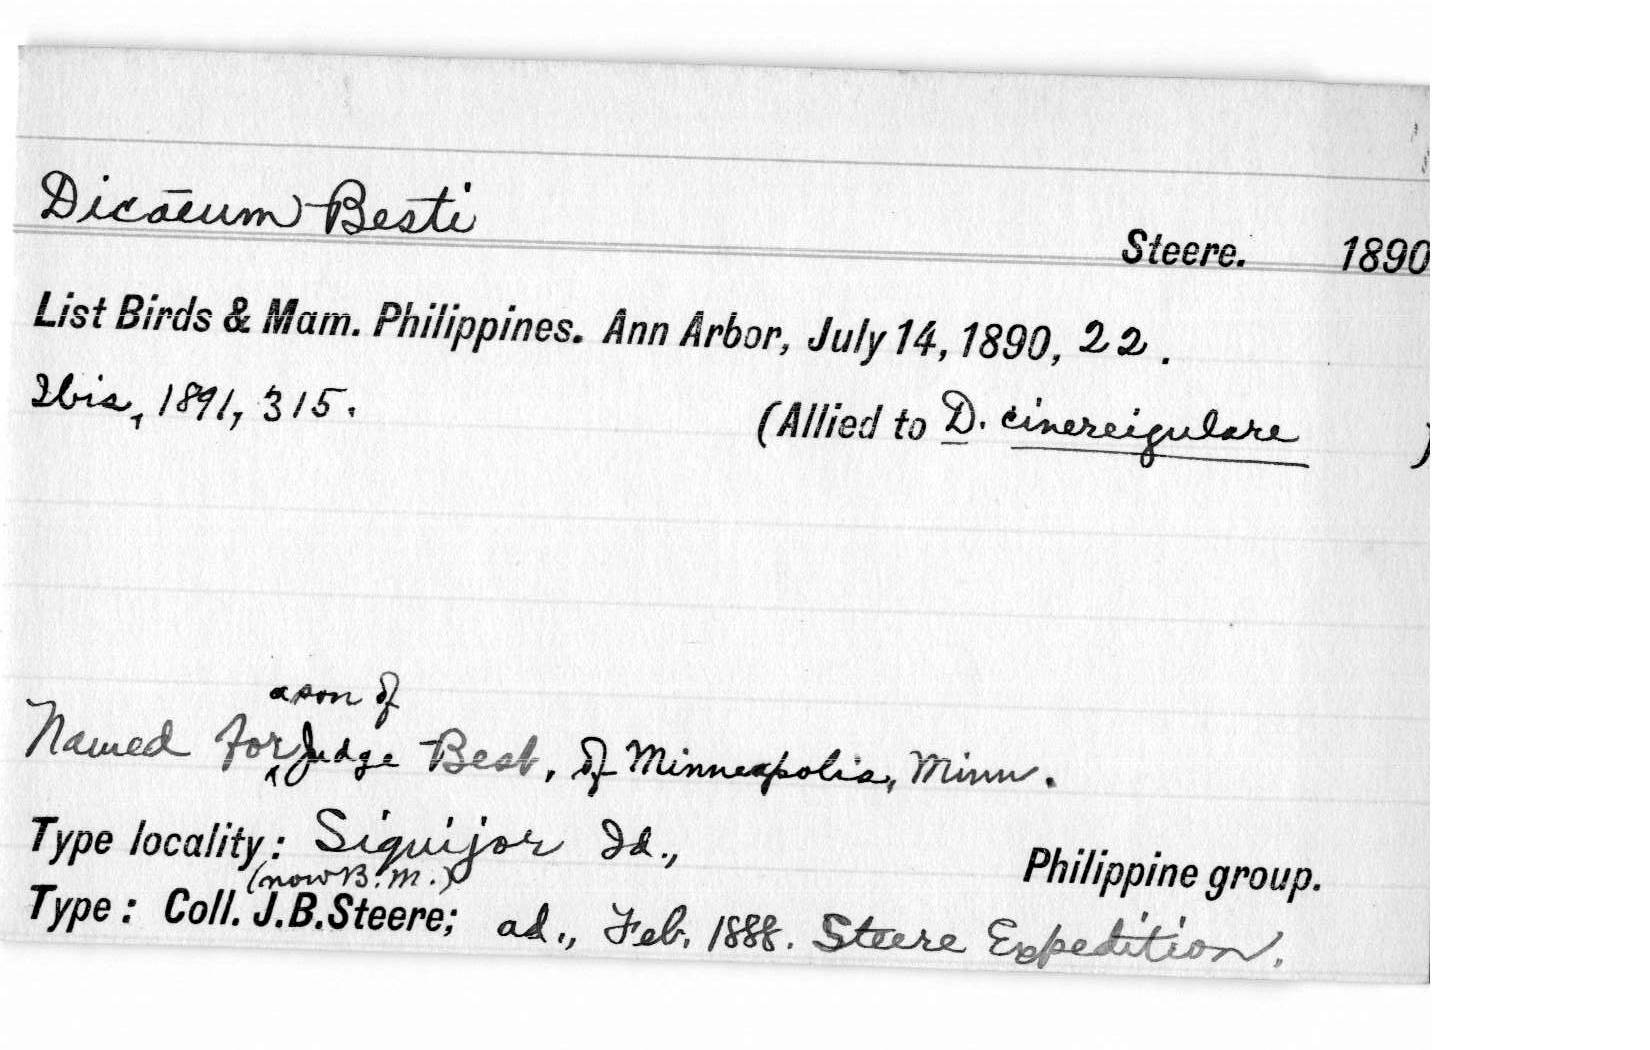 Dicāeum Besti
Steere. 1890
List Birds & Mam. Philippines. Ann Arbor, July 14, 1890, 22.
Ibis, 1891, 315.
(Allied to D. cinereigulare )
a son of
Named for ^ Judge Best, of Minneapolis, Minn.
Type locality: Siquijor Id., Philippine group.
(now B.M.)
Type: Coll. J.B.Steere; ad., Feb. 1888. Steere Expedition.